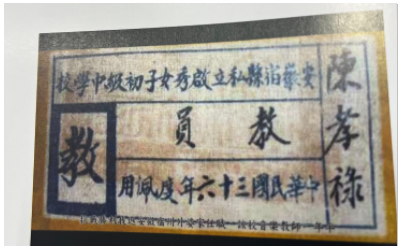 陳孝祿
安徽宿縣私立啟秀女子初級中學校
教員
中華民國三十六年度佩用
教